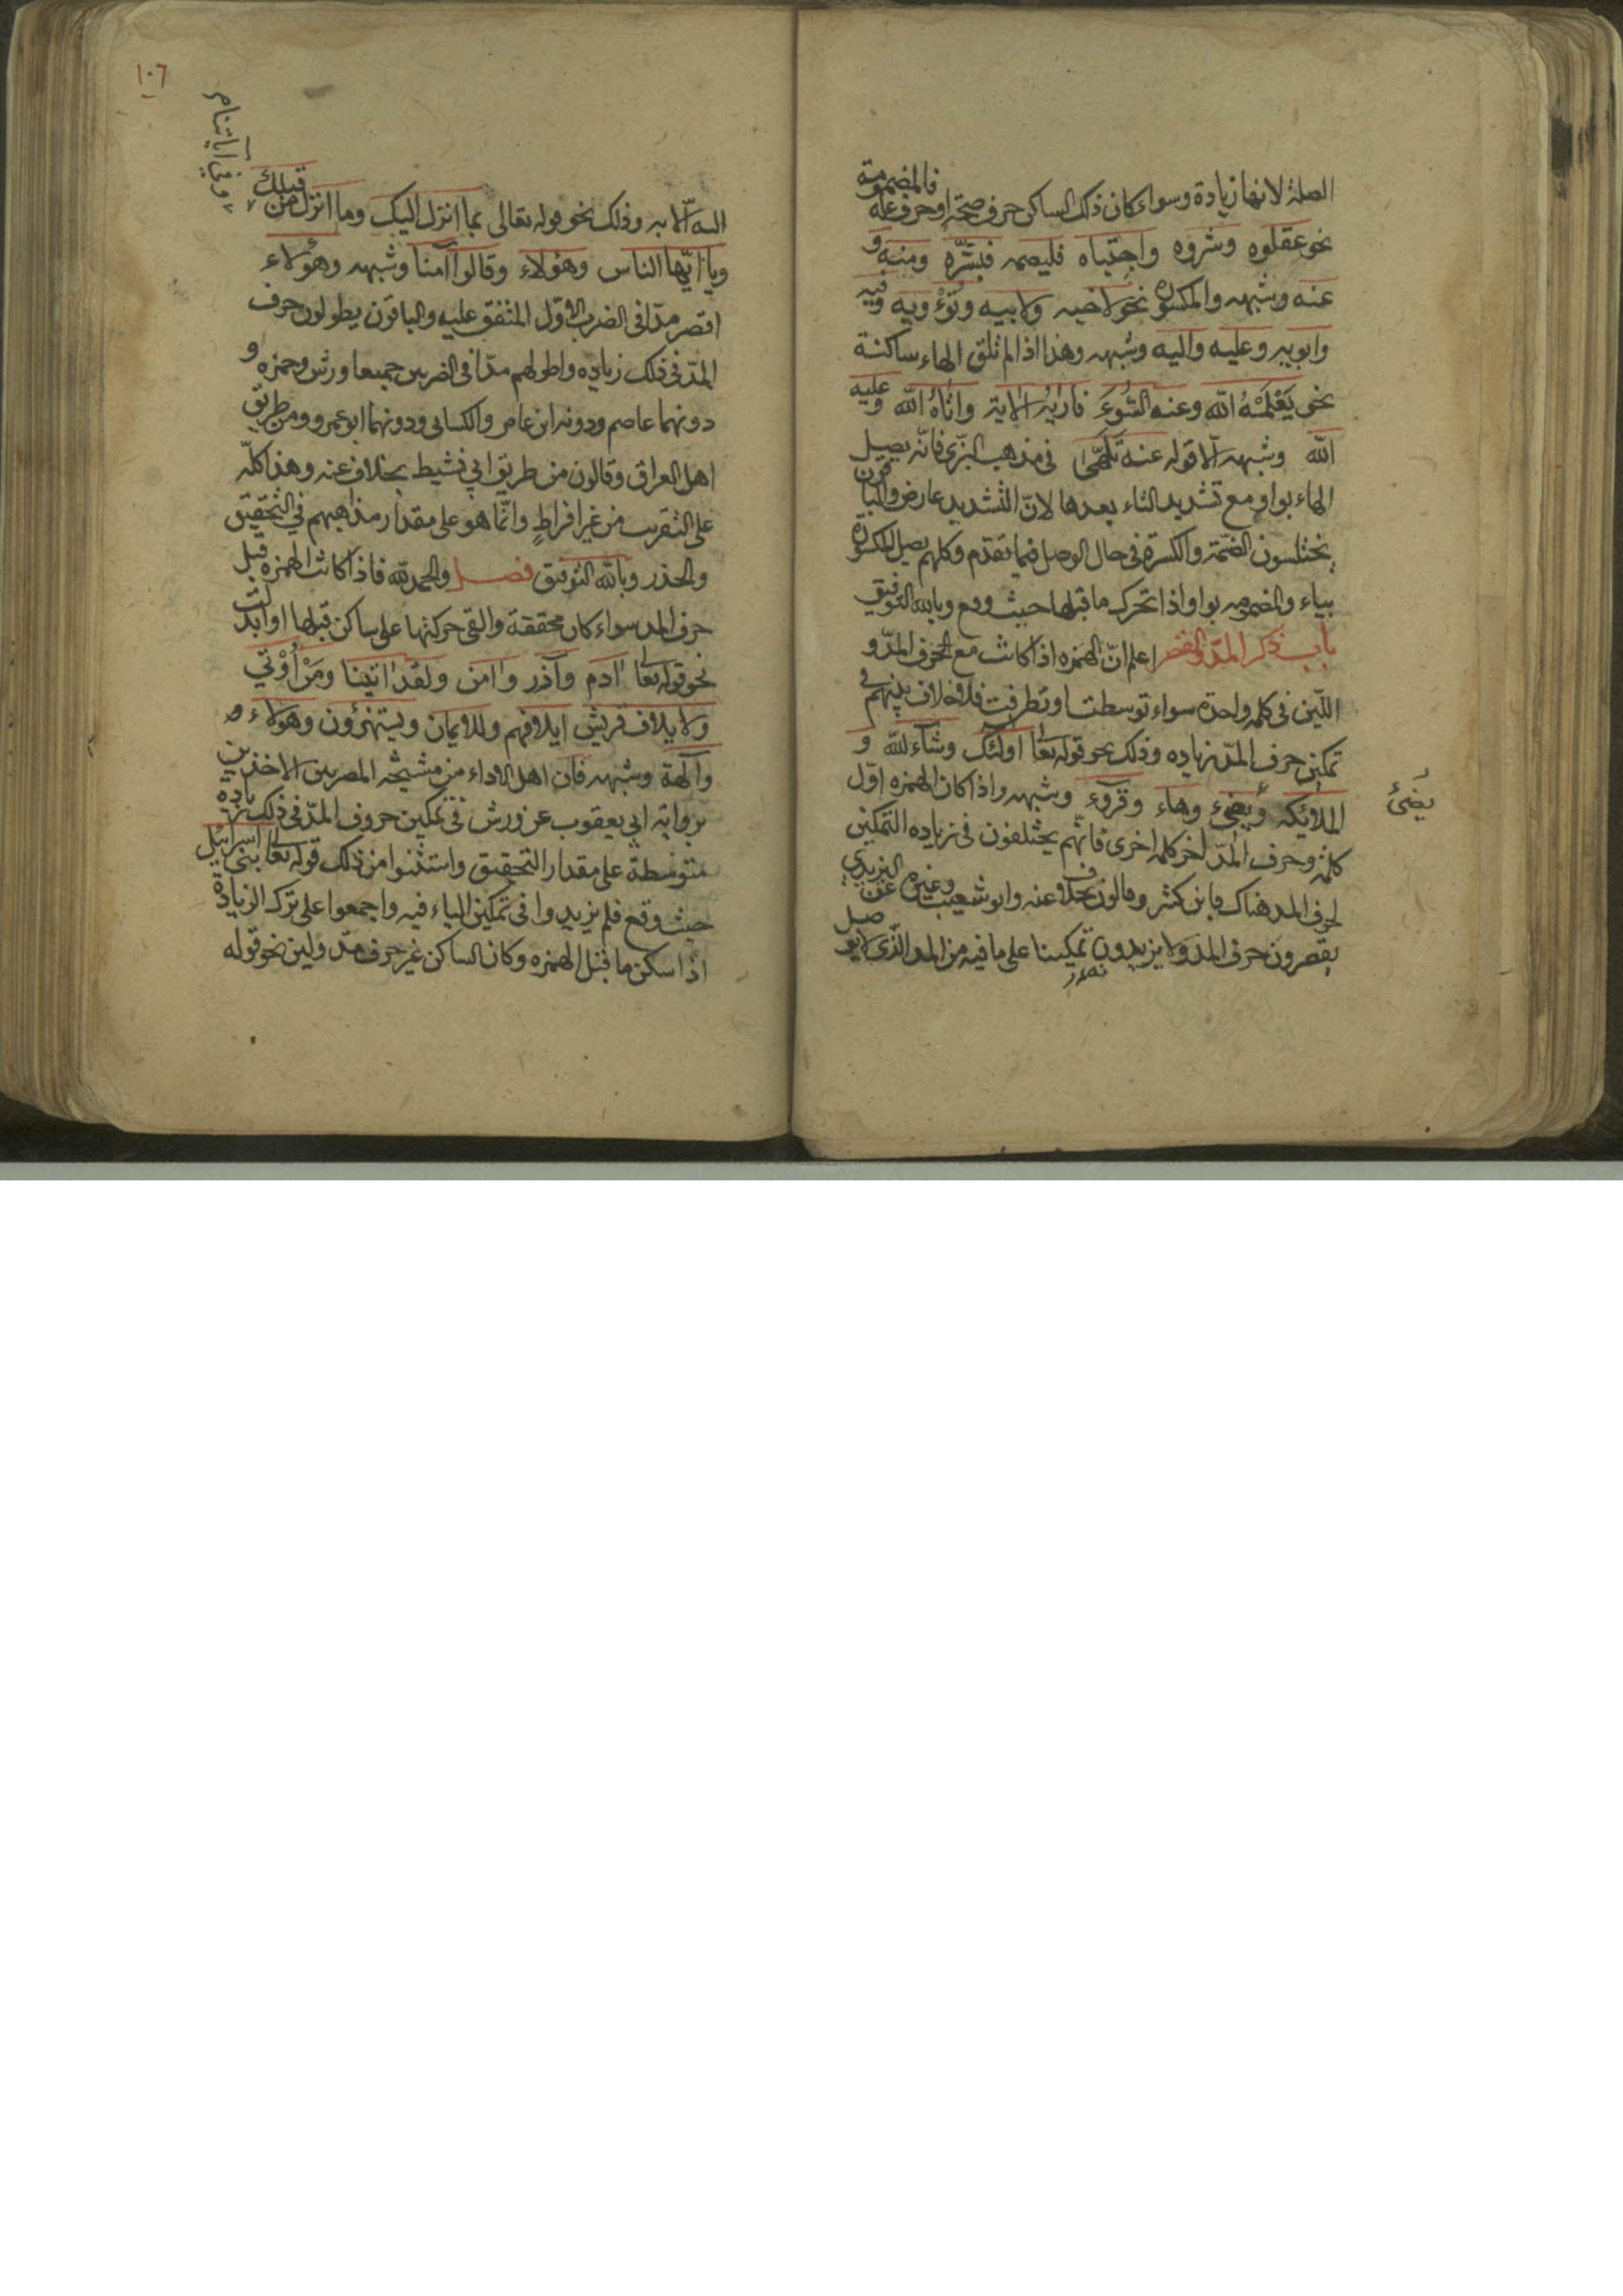 الصلة لانها زيادة وسواء كان ذلك الساكن حرف صحة او حرف علة فالمضمومة
نحو عقلوه وشروه واجتباه فليصمه فبشره ومنه و
عنه وشبهه والمكسورة نحو لاخيه ولابيه ونؤويه وفيه
وابويه وعليه واليه وشبهه وهذا اذا لم تلق الهاء ساكنة
نحو يعلمه الله وعنه السوء فاريه الاية واتاه الله وعليه
الله وشبهه الا قوله عنه تلهى في مذهب البزي فانه يصل
الهاء بواو مع تشديد التاء بعدها لان التشديد عارض والباقون
يختلسون الضمة والكسرة في حال الوصل فيما تقدم وكلهم يصل المكسورة
بياء والضمومه بواو اذا تحرك ما قبلها حيث وقع وبالله التوفيق
باب ذكر المد والقصر اعلم ان الهمزه اذا كانت مع الحرف المد و
اللين في كلمه واحدة سواء توسطت او تطرفت فلا خلاف بينهم في
تمكين حرف المد زياده وذلك نحو قوله تعا اولئك وشاء لله و
الملائكه ويضيء وهاء وقروء وشبهه واذا كان الهمزه اول
يضئ
كلمة وحرف المد اخر كلمه اخرى فانهم يختلفون في زياده التمكين
لحرف المد هناك فابن كثير وقالون بخلاف عنه وابو شعيب وغيره عن اليزيدي
يقصرون حرف المد ولا يزيدون تمكينا على ما فيه من المد الذي لا يوصل
١٠٦
اليه الا به وذلك نحو قوله تعالى بما انزل اليك وما انزل من قبلك
ويا ايها الناس وهؤلاء وقالوا آمنا وشبهه وهؤلاء
اقصر مدا في الضرب الاول المتفق عليه والباقون يطولون حرف
المد في ذلك زياده واطولهم مدا في الضربين جميعا ورش وحمزه و
دونهما عاصم ودونه ابن عامر والكسائي ودونهما ابو عمرو ومن طريق
اهل العراق وقالون من طريق ابي نشيط بخلاف عنه وهذا كله
على التقريب من غير افراط وانما هو على مقدار مذاهبهم في التحقيق
والحذر وبالله التوفيق فصل والحمد لله فاذا كانت الهمزه قبل
حرف المد سواء كان محققة والقى حركتها على ساكن قبلها او ابدلت
نحو قوله تعا ادم وآذر وامن ولقد اتينا ومن أوتي
ولايلاف قريش ايلافهم وللايمان ويستهزؤن وهولاء
وآلهة وشبهه فان اهل الاداء من مشيخه المصريين الاخذين
بروايه ابي يعقوب عن ورش في تمكين حروف المد في ذلك زياده
متوسطة على مقدار التحقيق واستثنوا من ذلك قوله تعا بني اسرائيل
حيث وقع فلم يزيدوا في تمكين الياء فيه واجمعوا على ترك الزيادة
اذا سكن ما قبل الهمزه وكان الساكن غير حرف مد ولين نحو قوله